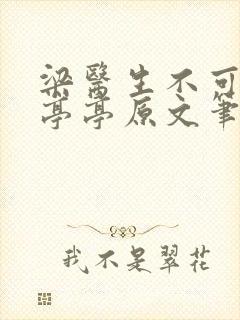 梁醫生不可
亭亭原文筆
我不是翠花